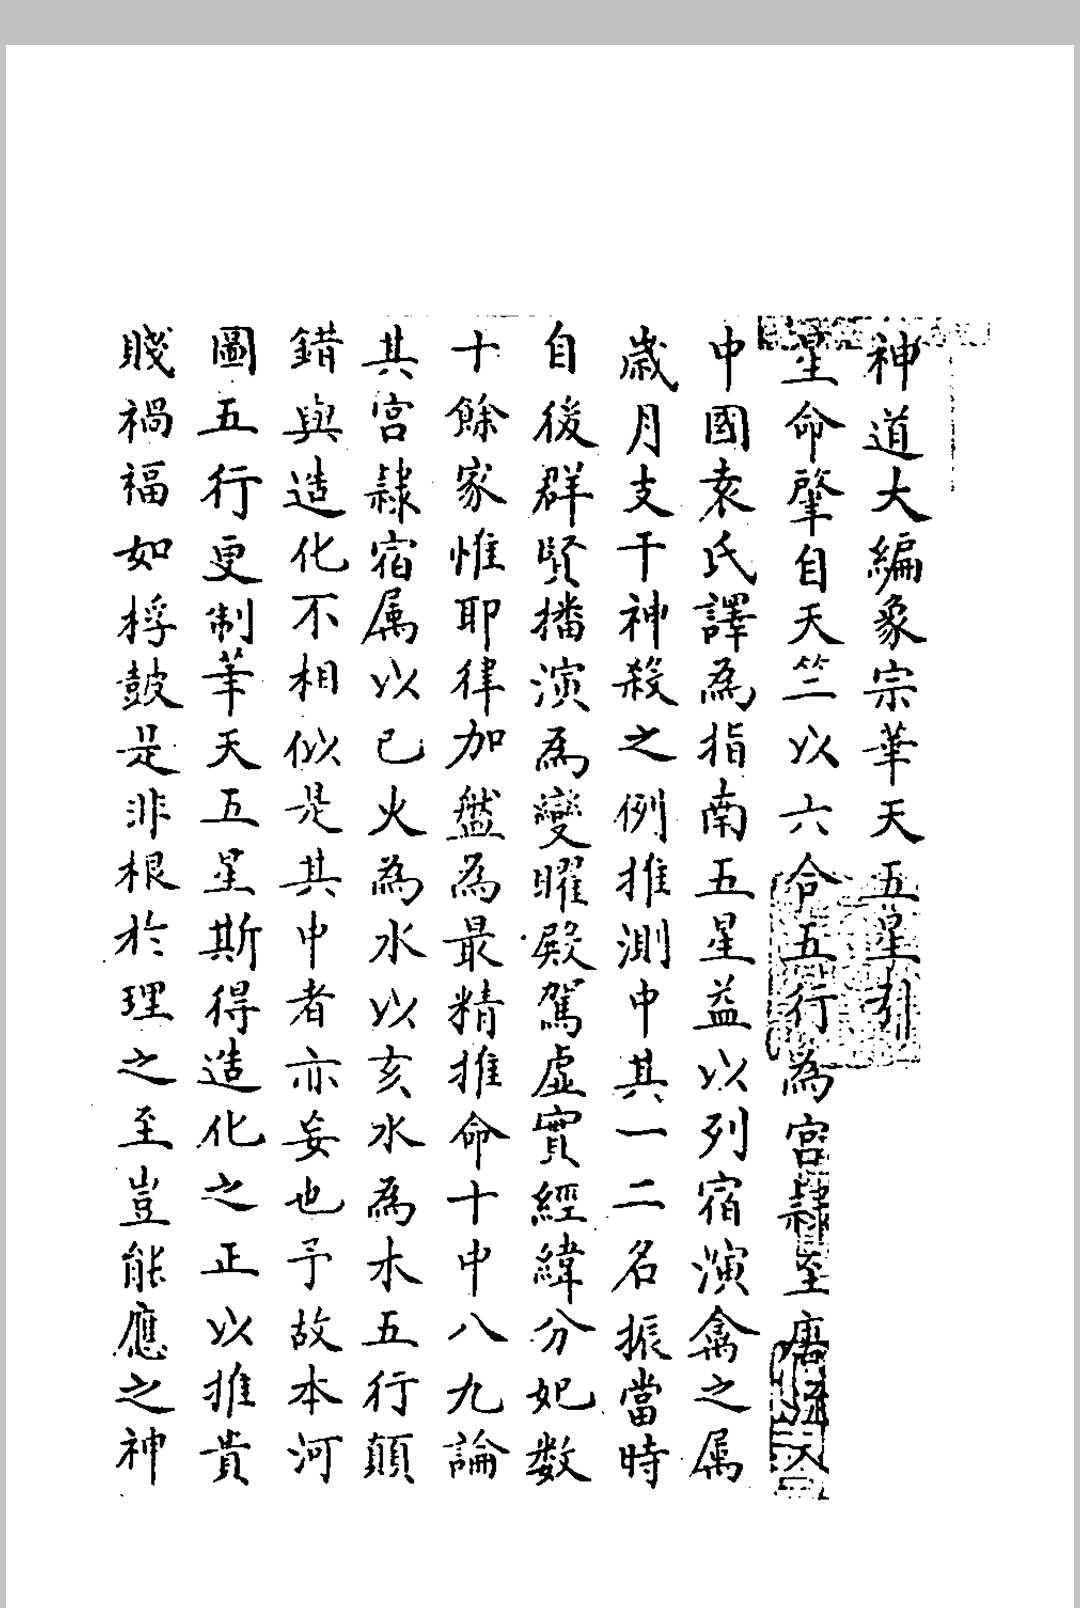 神道大編象宗華天五星引
星命肇自天竺以六合五行為宮隸至唐流入
中國袁氏譯為指南五星益以列宿演禽之属
歲月支干神殺之例推測中其一二名振當時
自後群賢播演為變曜殿駕虛實經緯分妃数
十餘家惟耶律加盤為最精推命十中八九論
其宮隸宿属以巳火為水以亥水為木五行顛
錯與造化不相似是其中者亦妄也予故本河
圖五行更制華天五星斯得造化之正以推貴
賤禍福如桴鼓是非根於理之至豈能應之神